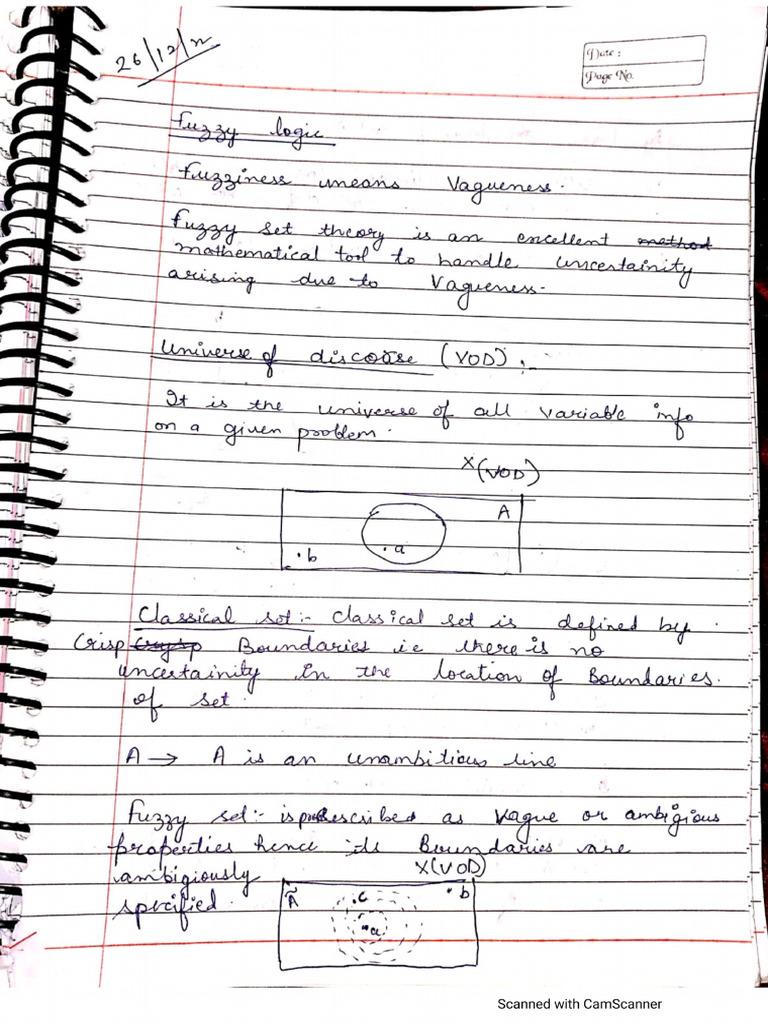 26/12/22
Date :
Page No.
Fuzzy logic
Fuzziness means Vagueness.
Fuzzy set theory is an excellent method
mathematical tool to handle uncertainity
arising due to Vagueness.
Universe of discourse (VOD) :-
It is the universe of all variable info
on a given problem.
X(VOD)
A
.b .a
Classical set :- Classical set is defined by
Crisp Boundaries ie there is no
uncertainity in the location of Boundaries.
of set.
A → A is an unambitious line
Fuzzy set :- is prescribed as Vague or ambigious
properties hence its Boundaries are
ambigiously
X(VOD)
specified.
Ã .c .b
.a
Scanned with CamScanner